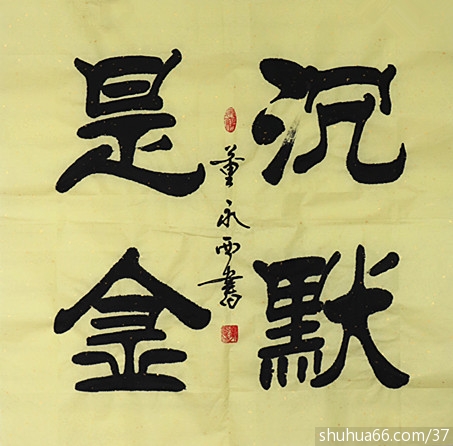 沉默
是金
董永西書
shuhua66.com/37